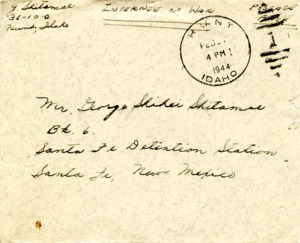 G. Shitamae
36-10-D
Hunt, Idaho
INTERNEE OF WAR
HUNT
4 PM
1944
IDAHO
Mr. George Shihei Shitamae
Bk. 6.
Santa Fe Detention Station
Santa Fe, New Mexico